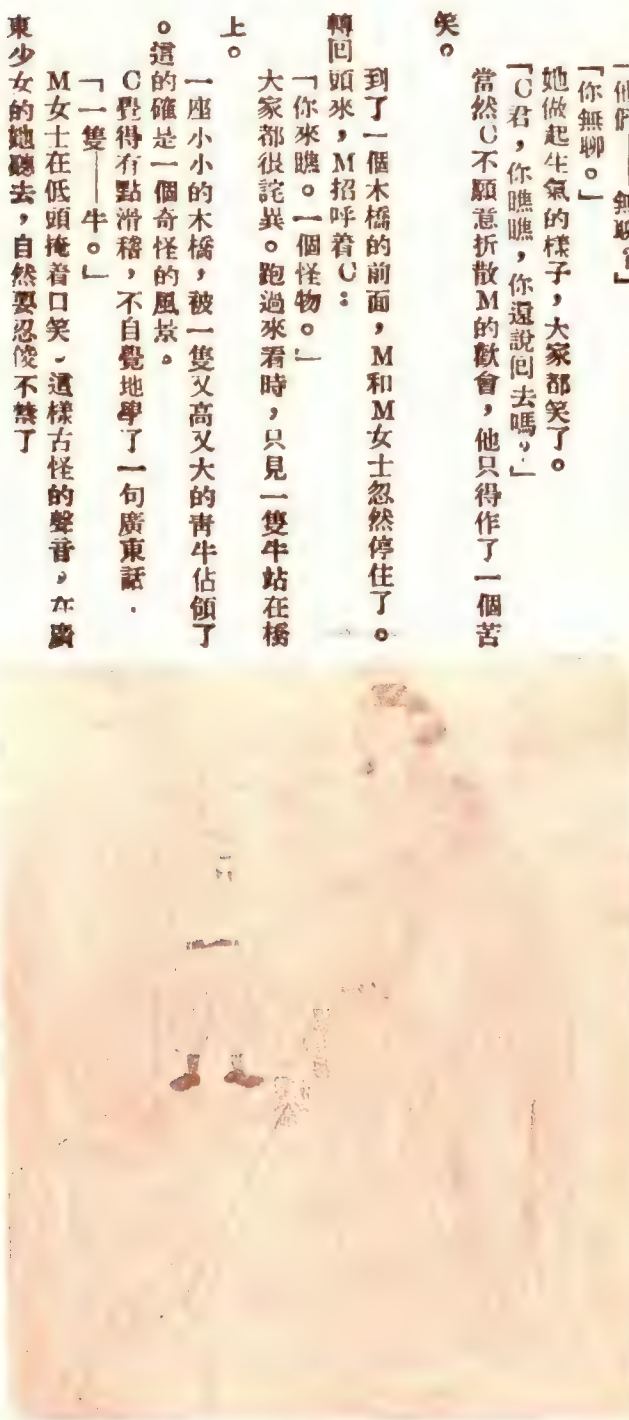 「你無聊。」
她做起生氣的樣子，大家都笑了。
「C君，你瞧瞧，你還說回去嗎？」
當然C不願意折散M的歡會，他只得作了一個苦
笑。
到了一個木橋的前面，M和M女士忽然停住了。
轉回頭來，M招呼着C：
「你來瞧。一個怪物。」
大家都很詫異。跑過來看時，只見一隻牛站在橋
上。
一座小小的木橋，被一隻又高又大的青牛佔領了
。這的確是一個奇怪的風景。
C覺得有點滑稽，不自覺地學了一句廣東話．
「一隻——牛。」
M女士在低頭掩着口笑。這樣古怪的聲音，在廣
東少女的她聽去，自然要忍俊不禁了